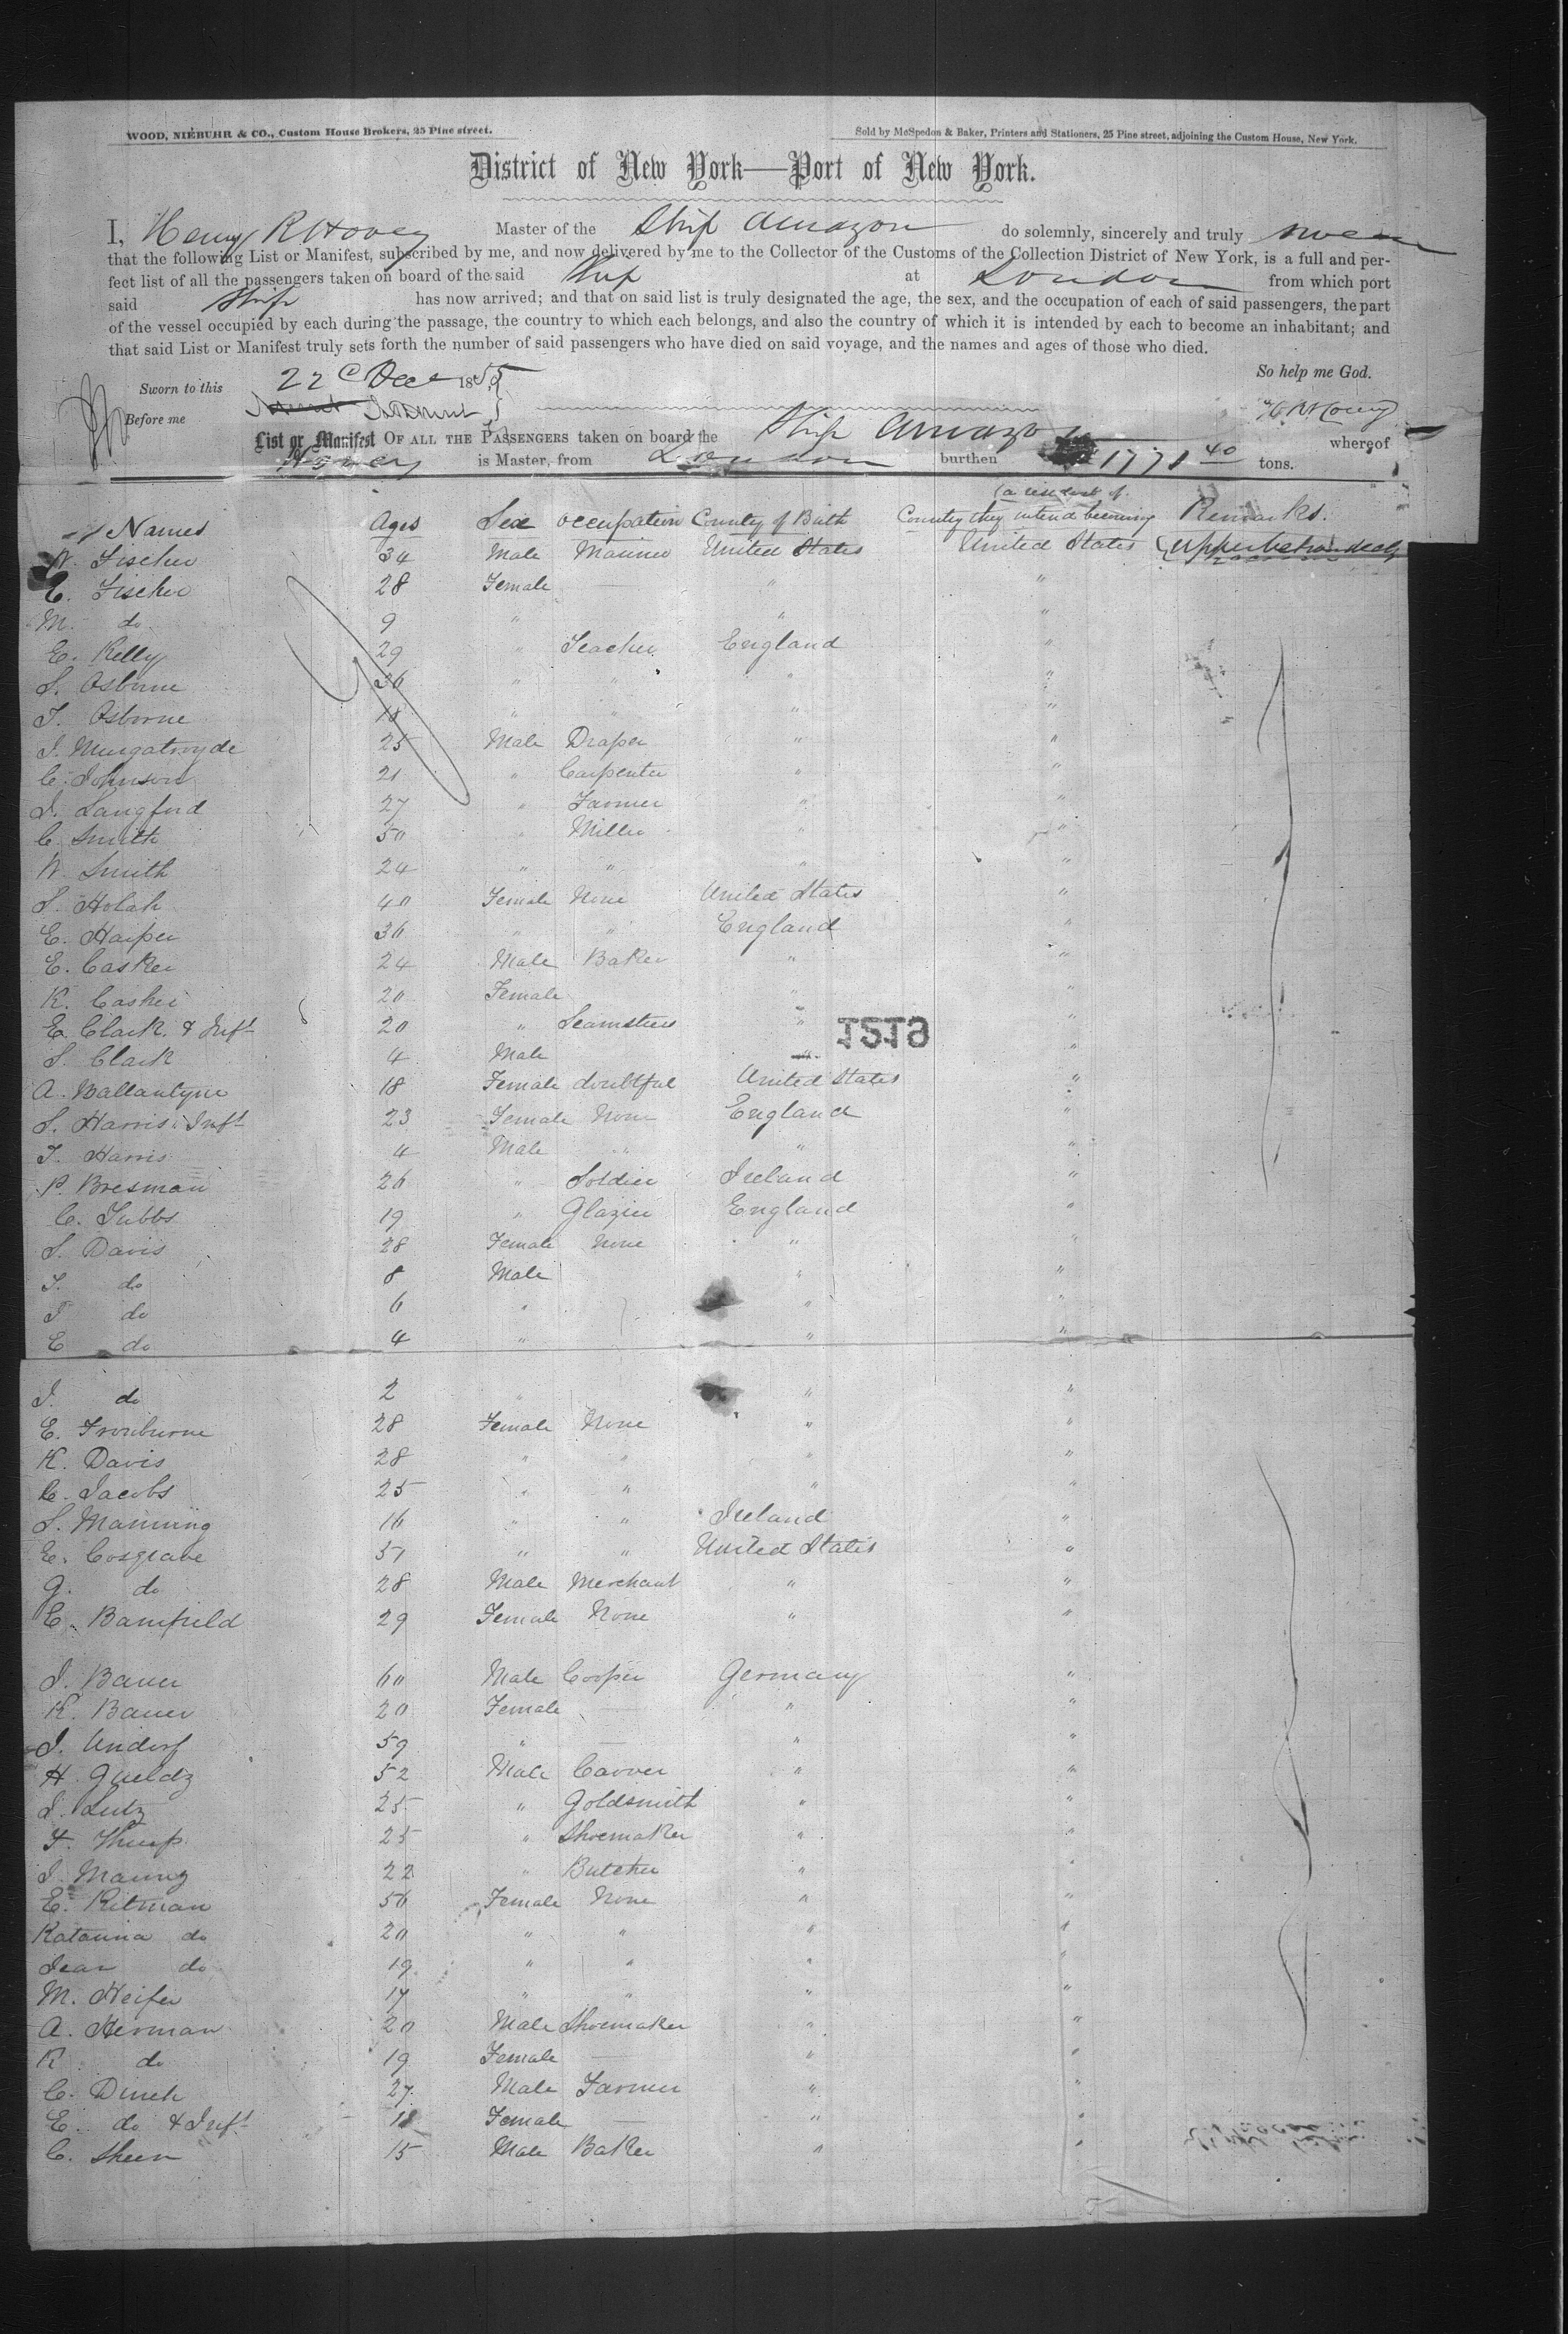 WOOD, NIEBUHR & CO., Custom House Brokers, 25 Pine street.
Sold by McSpedon & Baker, Printers and Stationers, 25 Pine street, adjoining the Custom House, New York.
District of New York—Port of New York.
I, Henry R Hovey Master of the Ship Amazon do solemnly, sincerely and truly swear
that the following List or Manifest, subscribed by me, and now delivered by me to the Collector of the Customs of the Collection District of New York, is a full and per-
fect list of all the passengers taken on board of the said Ship at London from which port
said Ship has now arrived; and that on said list is truly designated the age, the sex, and the occupation of each of said passengers, the part
of the vessel occupied by each during the passage, the country to which each belongs, and also the country of which it is intended by each to become an inhabitant; and
that said List or Manifest truly sets forth the number of said passengers who have died on said voyage, and the names and ages of those who died.
So help me God.
Sworn to this 22 Dec 1855
Before me
H R Hovey
List or Manifest OF ALL THE PASSENGERS taken on board the Ship Amazon whereof
Hovey is Master, from London burthen 1771 40 tons.
(a resident of
Names Ages Sex occupation County of Birth Country they intend becoming Remarks.
W. Fischer 34 Male Mariner United States United States
E. Fischer 28 Female — " "
M. do 9 " " "
E. Kelly 29 " Teacher England "
S. Osborne 36 " " " "
T. Osborne 18 " " " "
J. Murgatroyde 25 Male Draper " "
C. Johnson 21 " Carpenter " "
J. Langford 27 " Farmer " "
C. Smith 50 " Miller " "
W. Smith 24 " " " "
S. Holah 40 Female None United States "
E. Harper 36 " " England "
E. Casker 24 Male Baker " "
K. Casker 20 Female " "
E. Clark & Inft 20 " Seamstress " "
1519
S. Clark 4 Male " "
A. Ballantyne 18 Female doubtful United States "
S. Harris Inft 23 Female None England "
T. Harris 4 Male " " "
P. Bresman 26 " Soldier Ireland "
C. Tubbs 19 " Glazier England "
S. Davis 28 Female None " "
T. do 8 Male " "
T do 6 " " "
E do 4 " " "
J. do 2 " " "
E. 28 Female None " "
K. Davis 28 " " " "
C. Jacobs 25 " " " "
S. Manning 16 " " Ireland "
E. Cosgrave 51 " " United States "
G. do 28 Male Merchant " "
E. Bamfield 29 Female None " "
J. Bauer 60 Male Cooper Germany "
K. Bauer 20 Female — " "
J. Undorf 59 " — " "
H. Gueldz 52 Male Carver " "
J. Lutz 25 " Goldsmith " "
F. 25 " Shoemaker " "
J. Maunz 22 " Butcher " "
E. Ritman 56 Female None " "
Katarina do 20 " " " "
Jean do 19 " " " "
M. Heifer 17 " " " "
A. Herman 20 Male Shoemaker " "
K do 19 Female — " "
C. Dinch 27 Male Farmer " "
E. do & Inft 18 Female — " "
C. Sheen 15 Male Baker " "